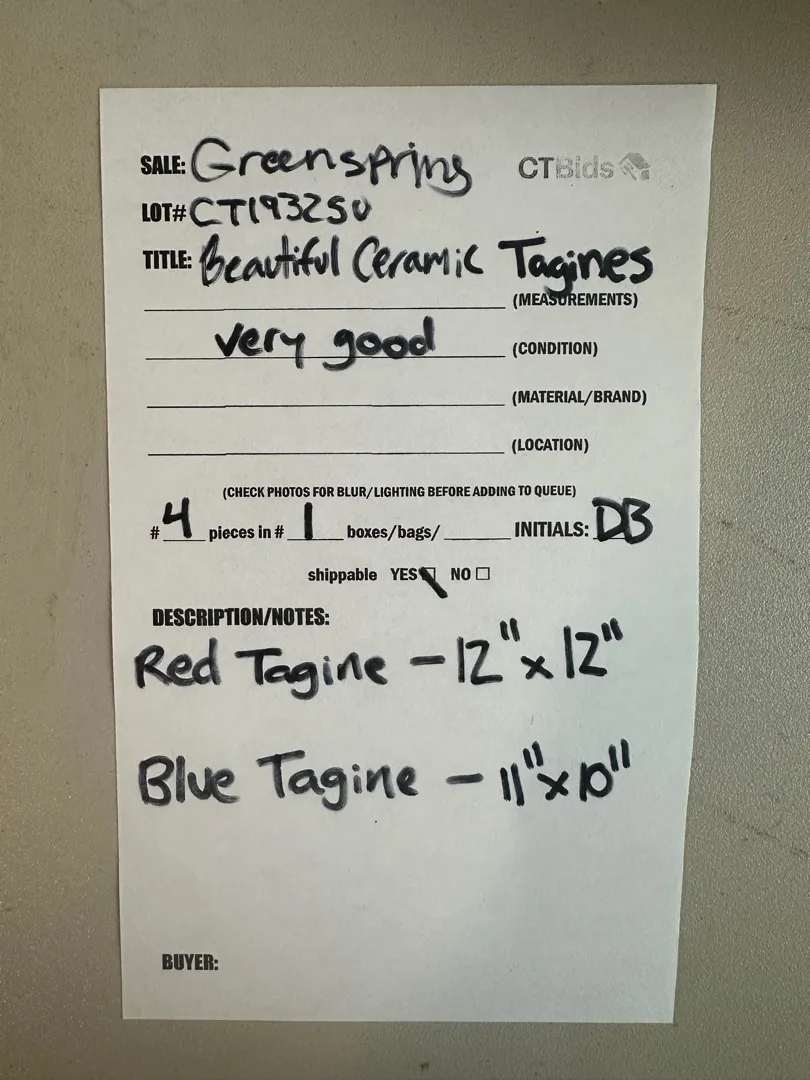 SALE: Greenspring CTBids
LOT# CT193250
TITLE: Beautiful Ceramic Tagines
(MEASUREMENTS)
very good (CONDITION)
(MATERIAL/BRAND)
(LOCATION)
(CHECK PHOTOS FOR BLUR/LIGHTING BEFORE ADDING TO QUEUE)
# 4 pieces in # 1 boxes/bags/ INITIALS: DB
shippable YES NO
DESCRIPTION/NOTES:
Red Tagine - 12" x 12"
Blue Tagine - 11" x 10"
BUYER: